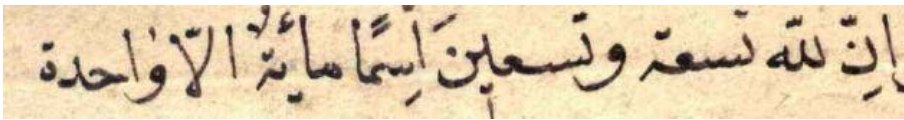 إنّ لله تسعة وتسعين اسمًا مائة الّا واحدة